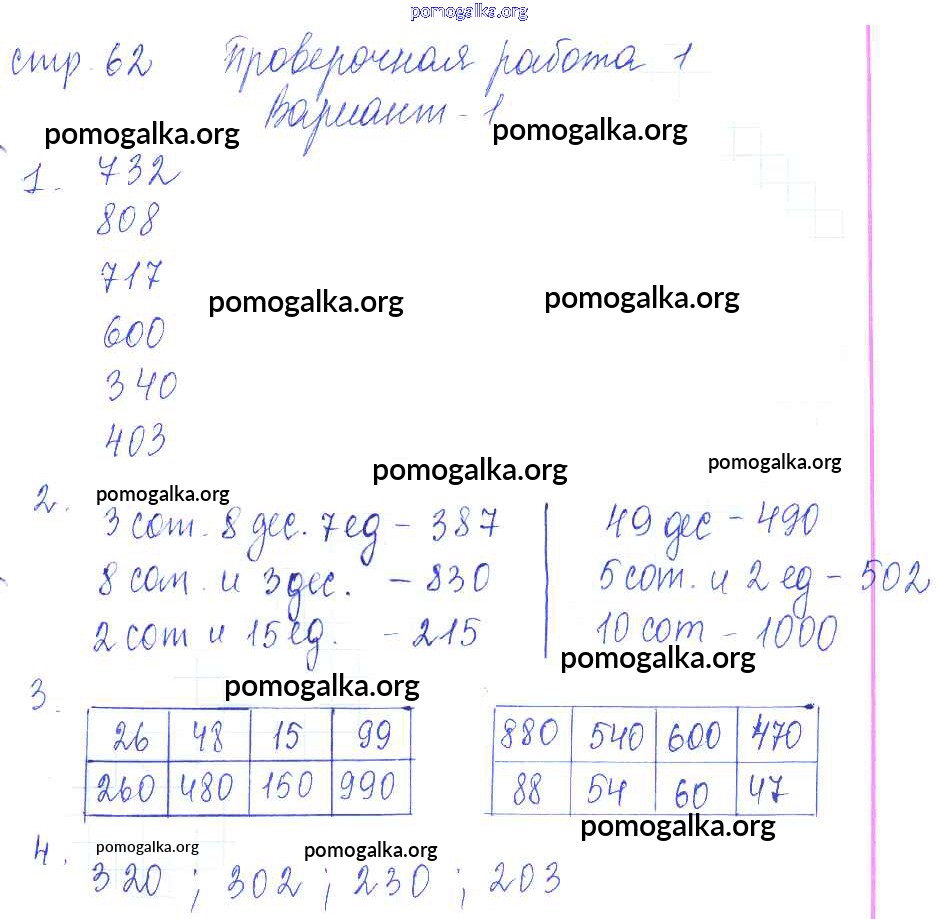 pomogalka.org
стр. 62 Проверочная работа 1
Вариант - 1
pomogalka.org pomogalka.org
1. 732
808
717
pomogalka.org pomogalka.org
600
340
403
pomogalka.org pomogalka.org
2. pomogalka.org
3 сот. 8 дес. 7 ед - 387 49 дес - 490
8 сот. и 3 дес. - 830 5 сот. и 2 ед - 502
2 сот и 15 ед. - 215 10 сот - 1000
pomogalka.org
3. pomogalka.org
26 48 15 99 880 540 600 470
260 480 150 990 88 54 60 47
pomogalka.org
4. pomogalka.org pomogalka.org
320 ; 302 ; 230 ; 203